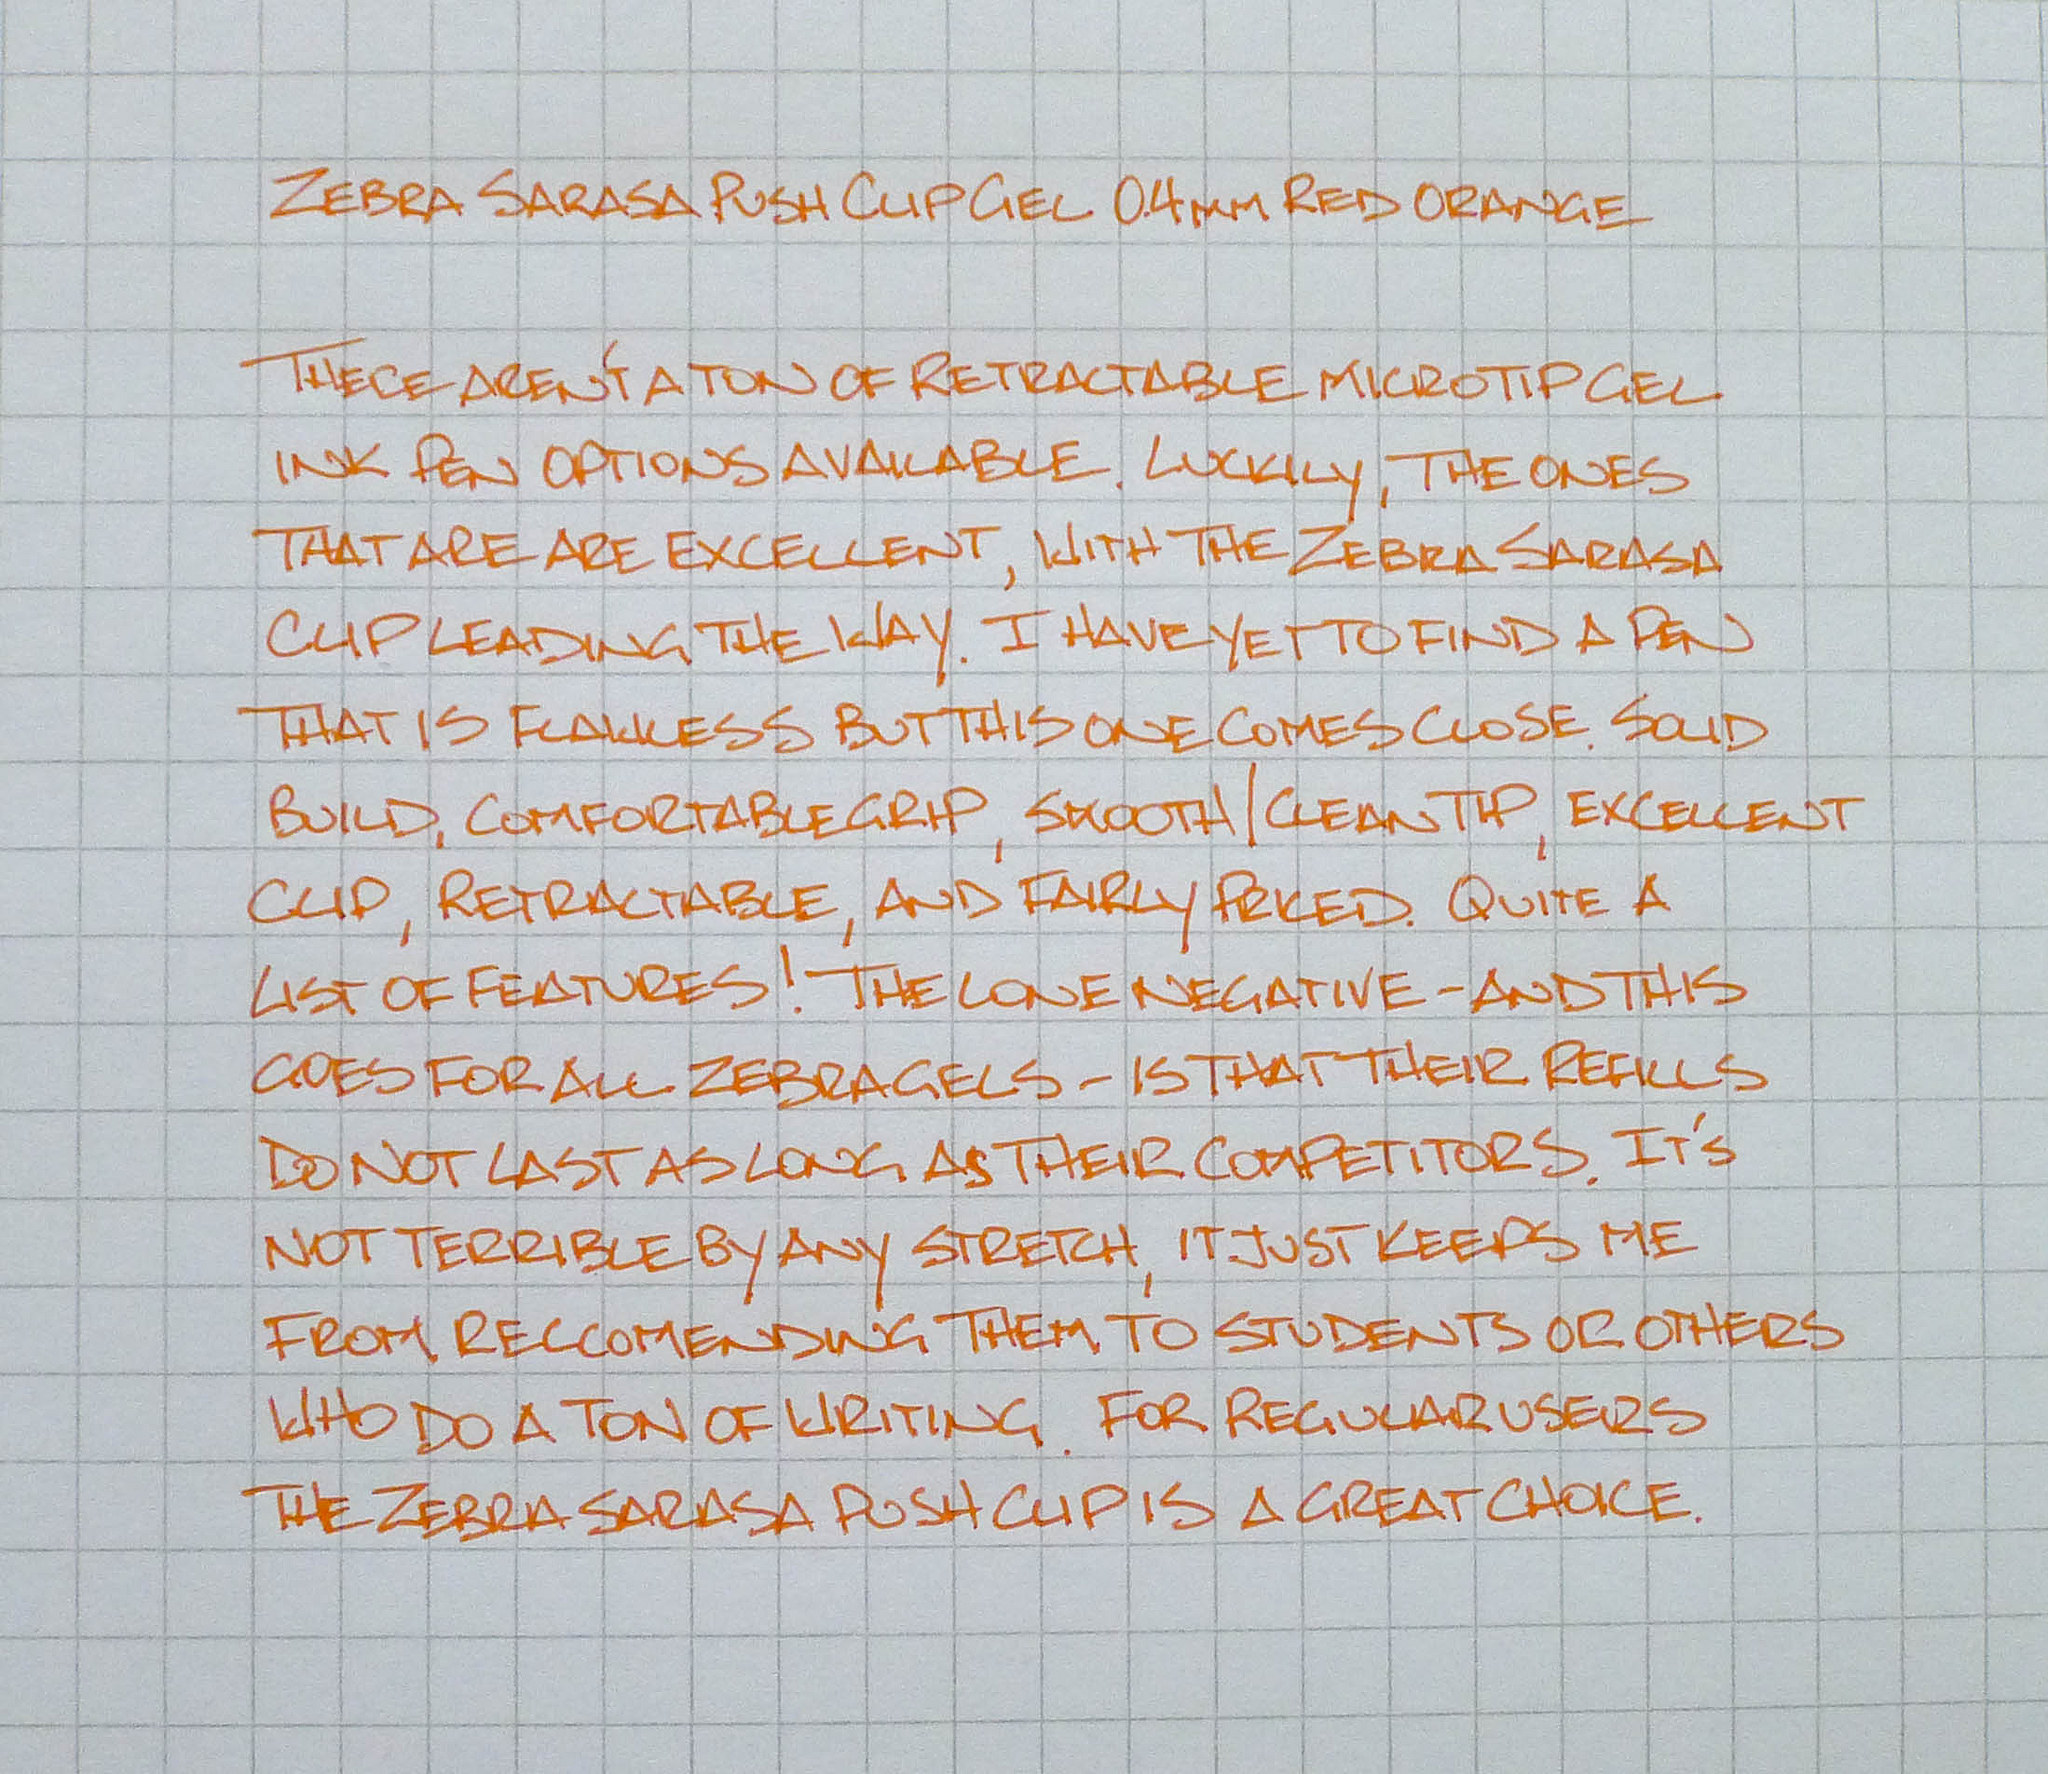 ZEBRA SARASA PUSH CLIP GEL 0.4MM RED ORANGE
THERE AREN'T A TON OF RETRACTABLE MICROTIP GEL
INK PEN OPTIONS AVAILABLE. LUCKILY, THE ONES
THAT ARE ARE EXCELLENT, WITH THE ZEBRA SARASA
CLIP LEADING THE WAY. I HAVE YET TO FIND A PEN
THAT IS FLAWLESS BUT THIS ONE COMES CLOSE. SOLID
BUILD, COMFORTABLE GRIP, SMOOTH/CLEAN TIP, EXCELLENT
CLIP, RETRACTABLE, AND FAIRLY PRICED. QUITE A
LIST OF FEATURES! THE LONE NEGATIVE - AND THIS
GOES FOR ALL ZEBRA GELS - IS THAT THEIR REFILLS
DO NOT LAST AS LONG AS THEIR COMPETITORS. IT'S
NOT TERRIBLE BY ANY STRETCH, IT JUST KEEPS ME
FROM RECCOMENDING THEM TO STUDENTS OR OTHERS
WHO DO A TON OF WRITING. FOR REGULAR USERS
THE ZEBRA SARASA PUSH CLIP IS A GREAT CHOICE.